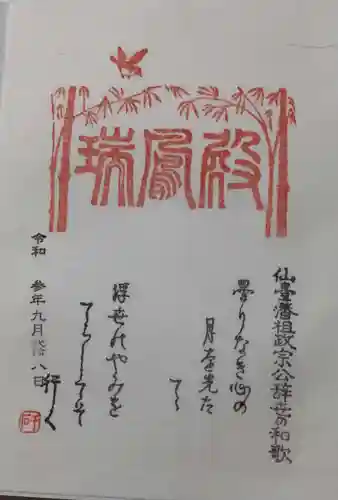 瑞鳳殿
仙臺藩祖政宗公辞世の和歌
曇りなき心の
月を先た
てゝ
浮世のやみを
てらしてそ
行く
令和
参年九月 八日